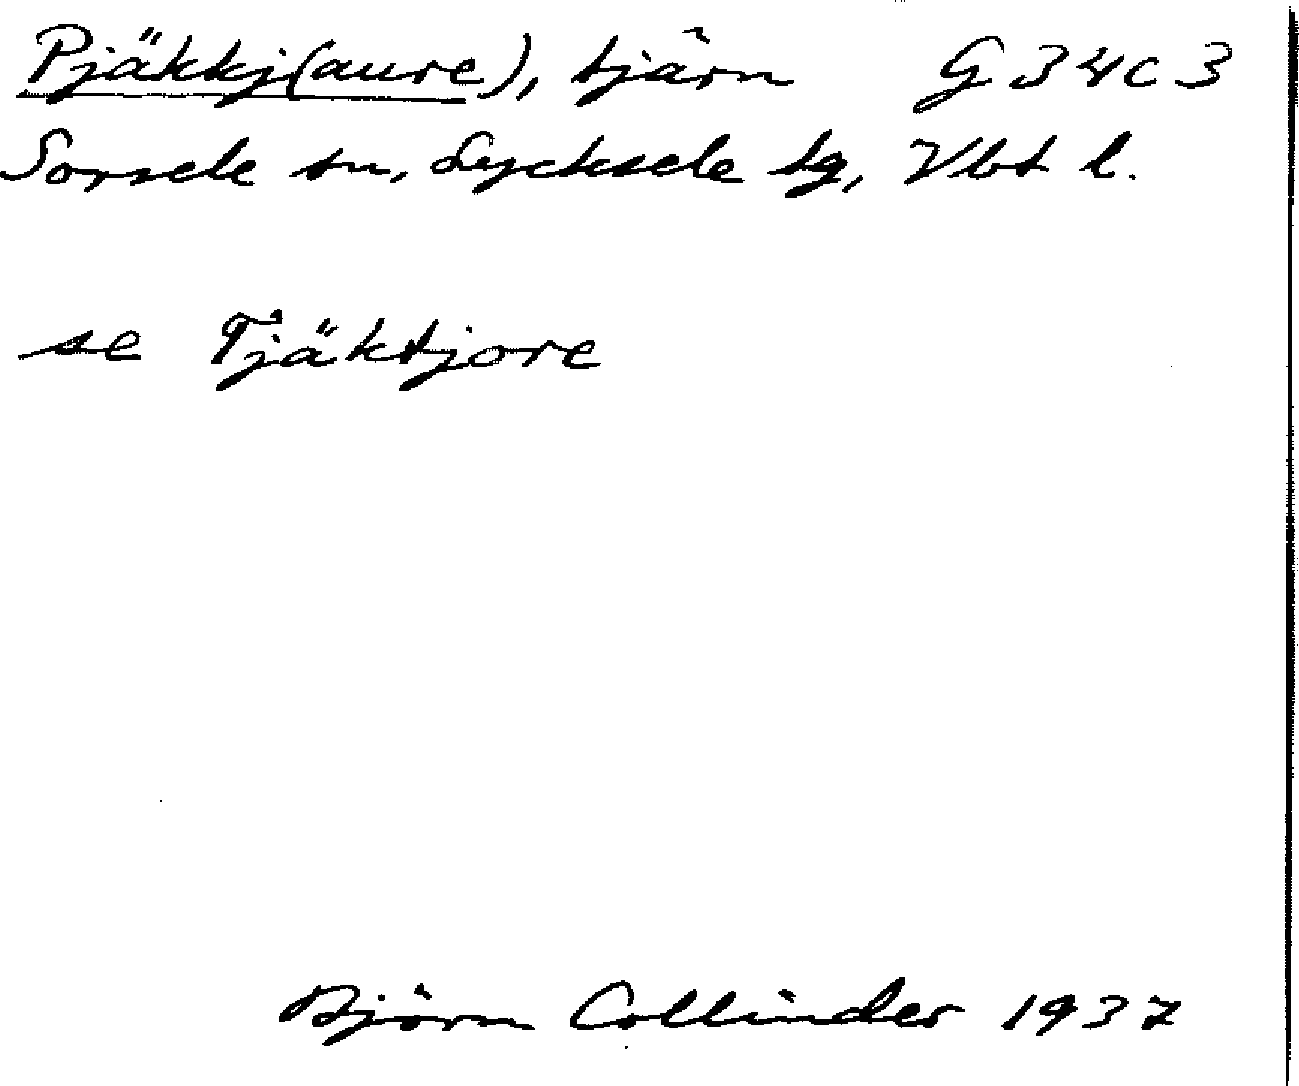 Pjäkkj(aure), tjärn G 34 C 3
Sorsele sn, Lycksele tg, Vbt l.
se Tjäktjore
Björn Collinder 1937